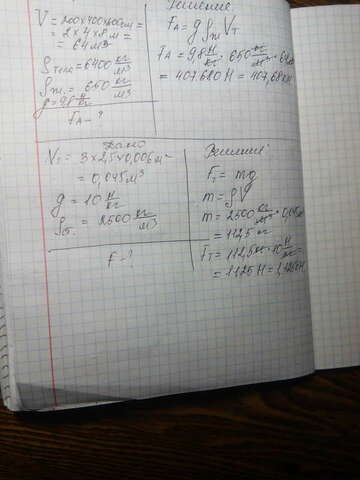 Решение
V = 200×400×800см =
= 2 × 4 × 8 м =
= 64 м³
ρтела = 6400 кг/м³
ρж. = 650 кг/м³
g = 9,8 Н/кг
FА - ?
FА = g ρж Vт
FА = 9,8 Н/кг · 650 кг/м³ · 64
= 407.680 Н = 407,68 кН
Дано
Vт = 3 × 2,5 × 0,006 м²
= 0,045 м³
g = 10 Н/кг
ρб. = 2500 кг/м³
F - ?
Решение:
Fт = mg
m = ρV
m = 2500 кг/м³ · 0,045
= 112,5 кг
Fт = 112,5 кг · 10 Н/кг =
= 1125 Н = 1,125 кН